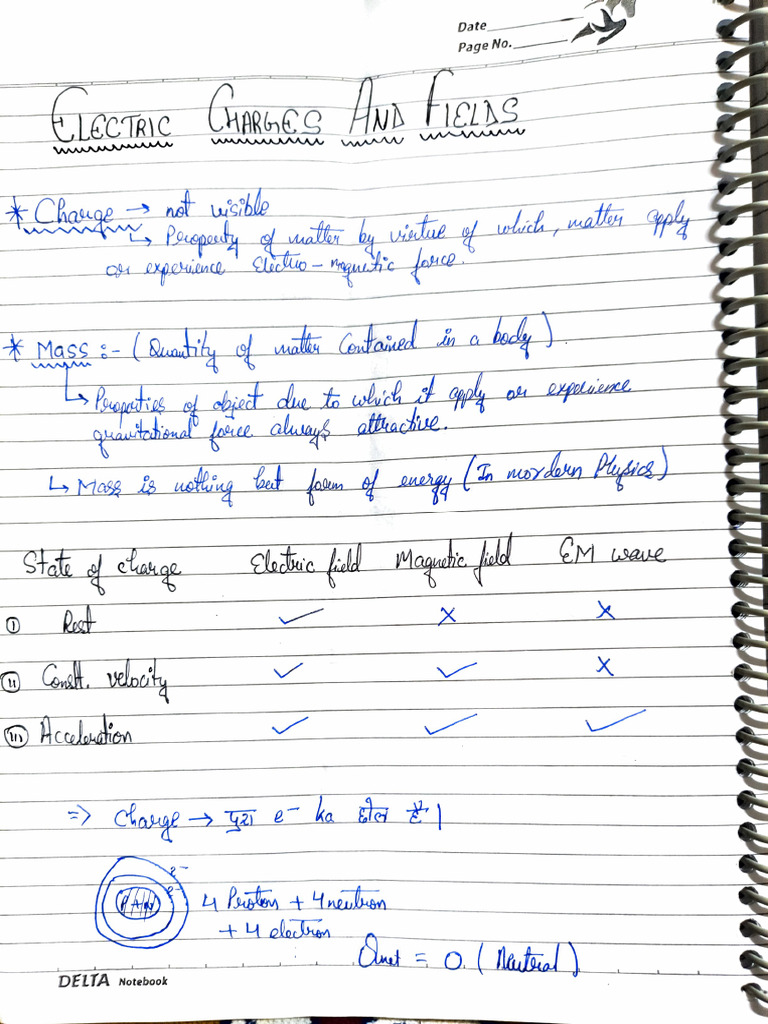 Date
Page No.
ELECTRIC CHARGES AND FIELDS
* Charge → not visible
↳ Property of matter by virtue of which, matter apply
or experience Electro-magnetic force.
* Mass :- (Quantity of matter Contained in a body).
↳ Properties of object due to which it apply or experience
gravitational force always attractive.
↳ Mass is nothing but form of energy (In mordern Physics)
State of charge Electric field Magnetic field EM wave
(i) Rest ✓ × ×
(ii) Constt. velocity ✓ ✓ ×
(iii) Acceleration ✓ ✓ ✓
⇒ Charge → पुरा e⁻ ka खेल है।
e⁻
e⁻
P + N
4 Proton + 4 neutron
+ 4 electron
Qnet = 0. (Neutral)
DELTA Notebook